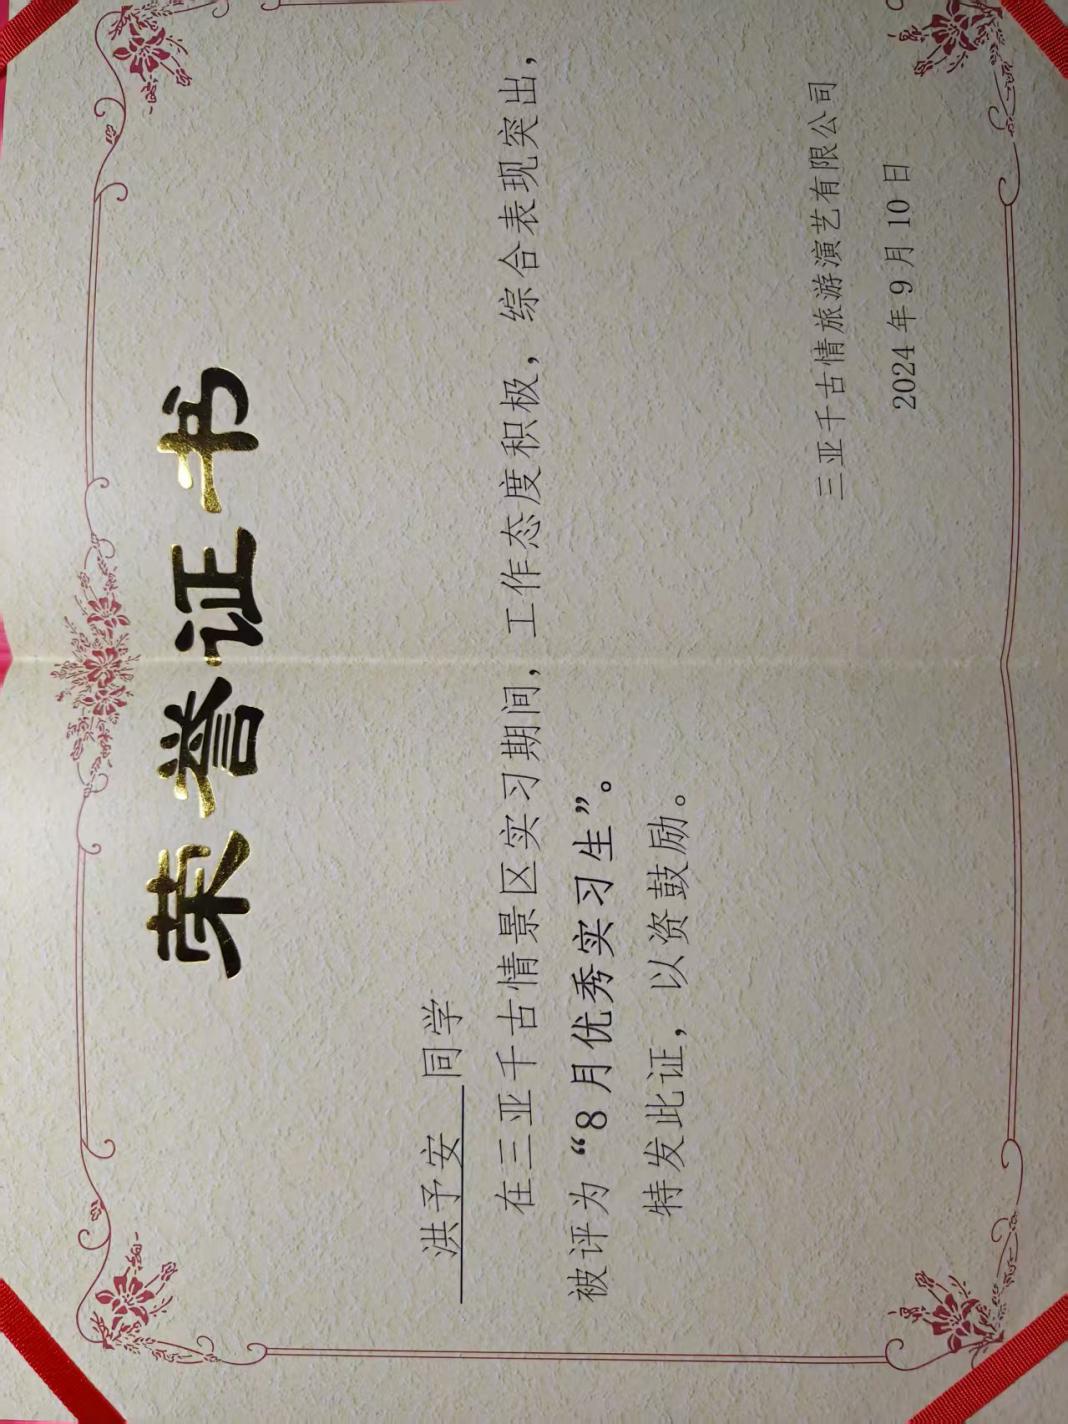 荣誉证书
洪予安 同学
在三亚千古情景区实习期间，工作态度积极，综合表现突出，
被评为“8月优秀实习生”。
特发此证，以资鼓励。
三亚千古情旅游演艺有限公司
2024年9月10日